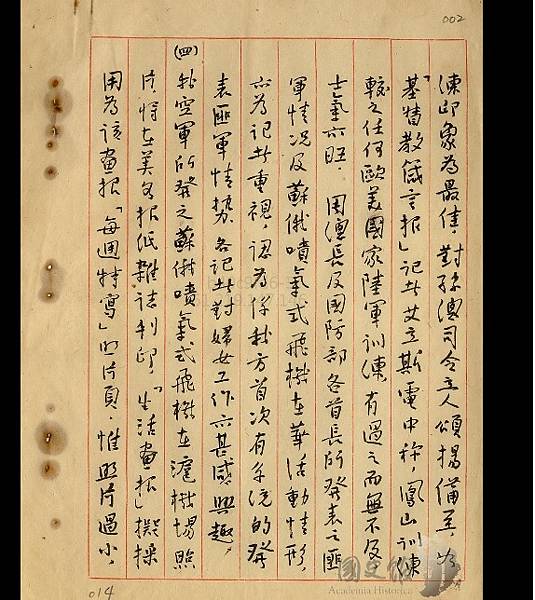 002
練印象為最佳，對孫總司令立人頌揚備至，如
「基督教箴言報」記者艾立斯電中稱，鳳山訓練
較之任何歐美國家陸軍訓練，有過之而無不及
士氣亦旺．周總長及國防部各首長所發表之匪
軍情況及蘇俄噴氣式飛機在華活動情形，
亦為記者重視，認為係我方首次有系統的發
表匪軍情勢．各記者對婦女工作亦甚感興趣，
(四)我空軍所發之蘇俄噴氣式飛機在滬機場照
片，將在美各報紙雜誌刊印，「生活畫報」擬採
用為該畫報「每週特寫」的片頁．惟照片過小，
014
國史館
Academia Historica